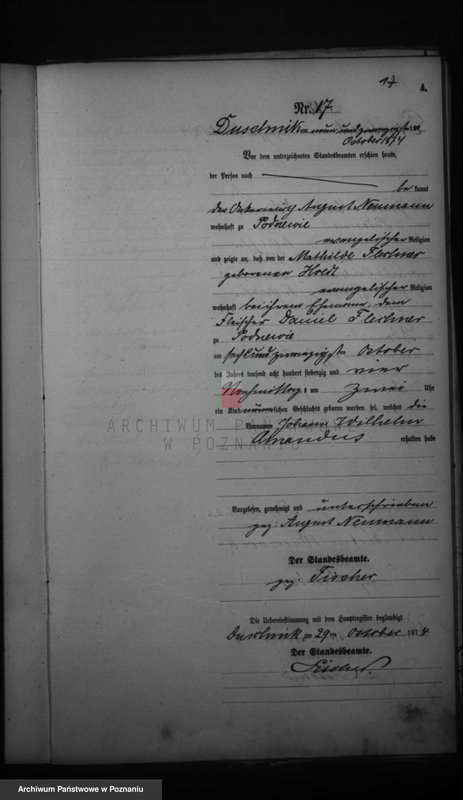 17
A.
Nr. 17.
Duschnik am neun und zwanzigsten
October 1874
Vor dem unterzeichneten Standesbeamten erschien heute,
der Person nach
be kannt
der August Neumann
wohnhaft zu Podrzewie
evangelischer Religion
und zeigte an, daß von der Mathilde Flechner
geborenen
evangelischer Religion
wohnhaft bei ihrem Ehemann, dem
Fleischer Daniel Flechner
zu Podrzewie
am sechs und zwanzigsten October
des Jahres tausend acht hundert siebenzig und vier
Nachmittags um zwei Uhr
ein Kind männlichen Geschlechts geboren worden sei, welches die
Vornamen Johann Wilhelm
Amandus erhalten habe
ARCHIWUM PAŃSTWOWE
W POZNANIU
Vorgelesen, genehmigt und unterschrieben
gez. August Neumann
Der Standesbeamte.
gez. Fischer
Die Uebereinstimmung mit dem Hauptregister beglaubigt
Duschnik am 29ten October 1874
Der Standesbeamte.
Fischer.
Archiwum Państwowe w Poznaniu